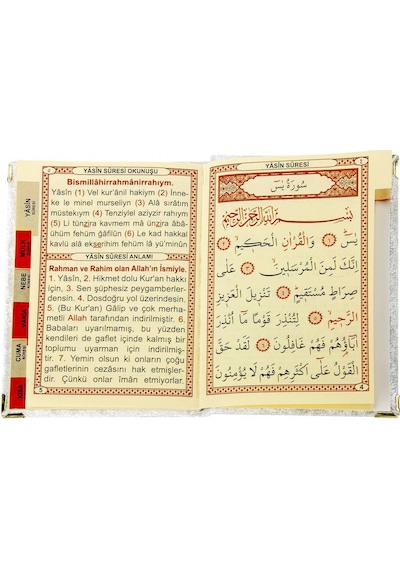 YÂSÎN SÛRESİ OKUNUŞU
Bismillâhirrahmânirrahıym.
Yâsîn (1) Vel kur'ânil hakiym (2) İnne-
ke le minel murseliyn (3) Alâ sırâtım
müstekıym (4) Tenziylel aziyzir rahıym
(5) Li tünzira kavmem mâ ünzira âbâ-
ühüm fehüm gâfilûn (6) Le kad hakkal
kavlü alâ ekserihim fehüm lâ yü'minûn
YÂSÎN SÛRESİ ANLAMI
Rahman ve Rahim olan Allah'ın İsmiyle.
1. Yâsîn, 2. Hikmet dolu Kur'an hakkı
için, 3. Sen şüphesiz peygamberler-
densin. 4. Dosdoğru yol üzerindesin.
5. (Bu Kur'an) Gâlip ve çok merha-
metli Allah tarafından indirilmiştir. 6.
Babaları uyarılmamış, bu yüzden
kendileri de gaflet içinde kalmış bir
toplumu uyarman için indirilmiş-
tir. 7. Yemin olsun ki onların çoğu
gafletlerinin cezasını hak etmişler-
dir. Çünkü onlar îmân etmiyorlar.
5
YÂSÎN
SÛRESİ
MÜLK
NEBE
VAKIA
CUMA
KISA
YÂSÎN SÛRESİ
سُورَةُ يٰسٓ
بِسْمِ اللّٰهِ الرَّحْمٰنِ الرَّحِيمِ
يٰسٓ ﴿١﴾ وَالْقُرْاٰنِ الْحَكِيمِ ﴿٢﴾
اِنَّكَ لَمِنَ الْمُرْسَلِينَ ﴿٣﴾ عَلٰى
صِرَاطٍ مُسْتَقِيمٍ ﴿٤﴾ تَنْزِيلَ الْعَزِيزِ
الرَّحِيمِ ﴿٥﴾ لِتُنْذِرَ قَوْمًا مَٓا اُنْذِرَ
اٰبَٓاؤُ۬هُمْ فَهُمْ غَافِلُونَ ﴿٦﴾ لَقَدْ حَقَّ
الْقَوْلُ عَلٰٓى اَكْثَرِهِمْ فَهُمْ لَا يُؤْمِنُونَ
4